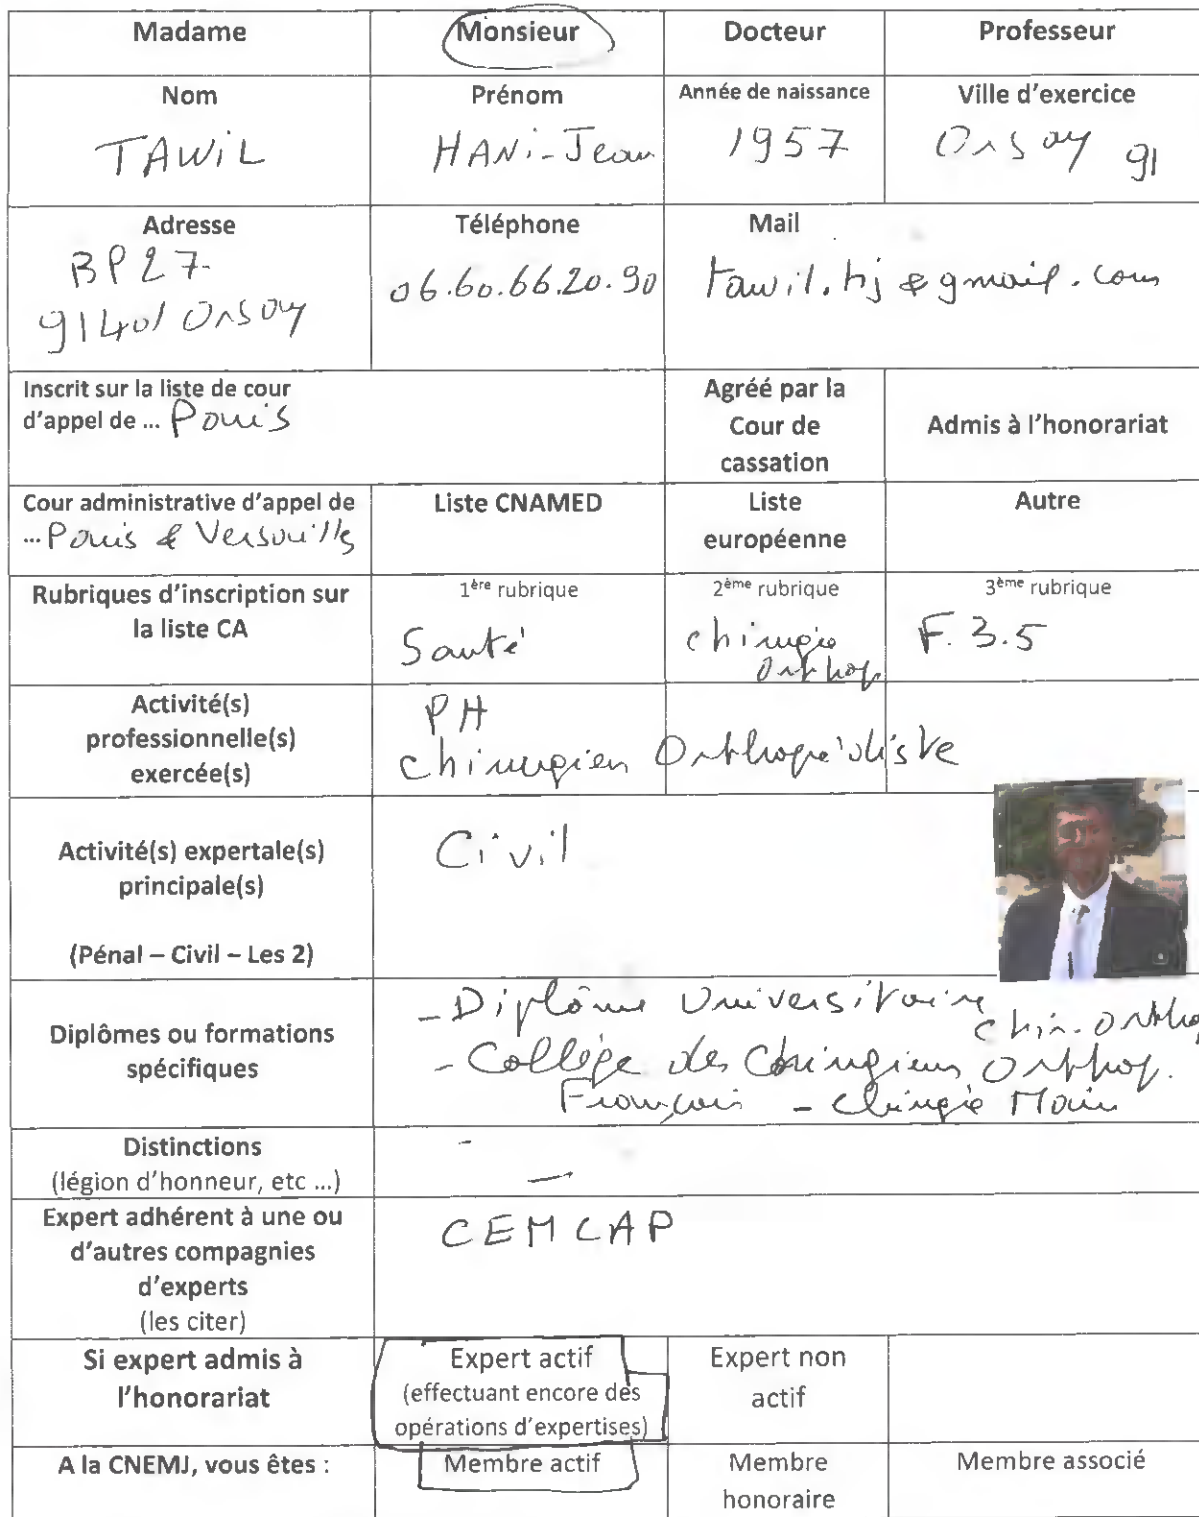 Madame Monsieur Docteur Professeur
Nom Prénom Année de naissance Ville d'exercice
TAWIL HANI-Jean 1957 Orsay 91
Adresse Téléphone Mail
BP 27 06.60.66.20.90 tawil.hj@gmail.com
91401 Orsay
Inscrit sur la liste de cour
d'appel de ... Paris
Agréé par la
Cour de
cassation
Admis à l'honorariat
Cour administrative d'appel de
... Paris & Versailles
Liste CNAMED
Liste
européenne
Autre
Rubriques d'inscription sur
la liste CA
1ère rubrique
Santé
2ème rubrique
chirurgie
Orthop
3ème rubrique
F.3.5
Activité(s)
professionnelle(s)
exercée(s)
PH
chirurgien Orthopédiste
Activité(s) expertale(s)
principale(s)
(Pénal – Civil – Les 2)
Civil
Diplômes ou formations
spécifiques
- Diplôme Universitaire chir. ortho
- Collège des Chirurgiens Orthop.
Français - Chirurgie Main
Distinctions
(légion d'honneur, etc ...)
Expert adhérent à une ou
d'autres compagnies
d'experts
(les citer)
CEMCAP
Si expert admis à
l'honorariat
Expert actif
(effectuant encore des
opérations d'expertises)
Expert non
actif
A la CNEMJ, vous êtes :
Membre actif
Membre
honoraire
Membre associé